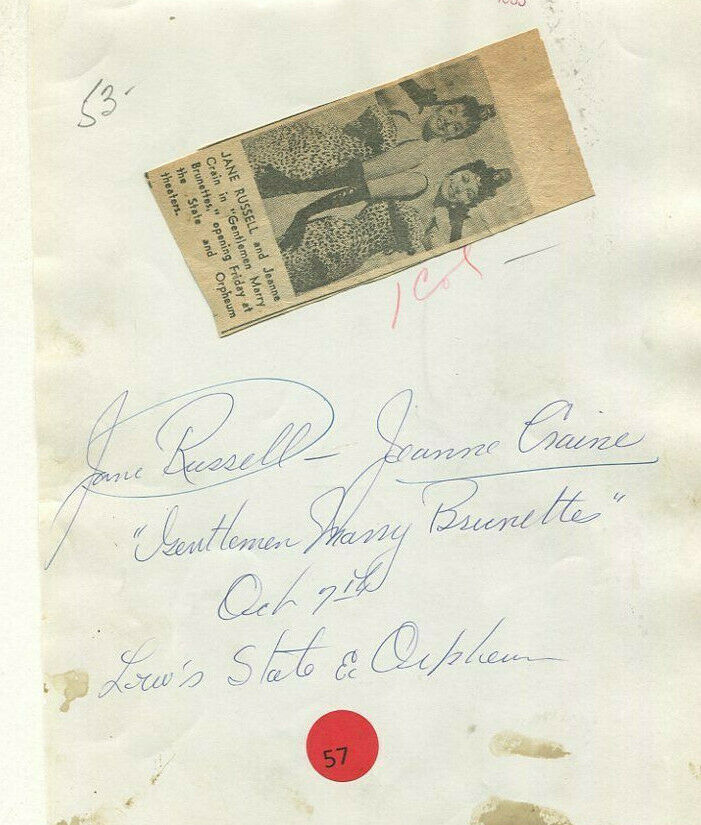 53-
JANE RUSSELL and Jeanne
Crain in "Gentlemen Marry
Brunettes," opening Friday at
the State and Orpheum
theaters.
1 Col
Jane Russell - Jeanne Craine
"Gentlemen Marry Brunettes"
Oct 7th
Lew's State & Orpheum
57